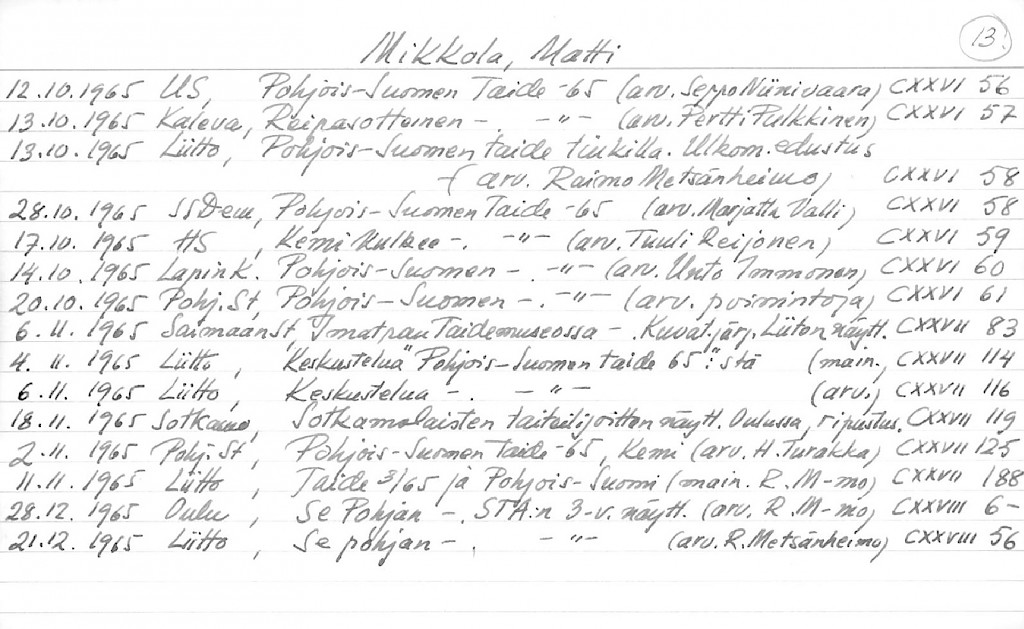 13.
Mikkola, Matti
12.10.1965 US, Pohjois-Suomen Taide -65 (arv. Seppo Niinivaara) CXXVI 56
13.10.1965 Kaleva, Reipasotteinen -. -"- (arv. Pertti Pulkkinen) CXXVI 57
13.10.1965 Liitto, Pohjois-Suomen taide tiukilla. Ulkom. edustus
(arv. Raimo Metsänheimo) CXXVI 58
28.10.1965 SSDem, Pohjois-Suomen Taide -65 (arv. Marjatta Valli) CXXVI 58
17.10.1965 HS, Kemi kulkee -. -"- (arv. Tuuli Reijonen) CXXVI 59
14.10.1965 Lapin K. Pohjois-Suomen -. -"- (arv. Unto Immonen) CXXVI 60
20.10.1965 Pohj. St, Pohjois-Suomen -. -"- (arv. poimintoja) CXXVI 61
6.11.1965 Saimaan St, Imatran Taidemuseossa -. Kuvat.järj. Liiton näytt. CXXVII 83
4.11.1965 Liitto, Keskustelua "Pohjois-Suomen taide 65":stä (main. CXXVII 114
6.11.1965 Liitto, Keskustelua -. -"- (arv.) CXXVII 116
18.11.1965 Sotkamo, Sotkamolaisten taiteilijoitten näytt. Oulussa, ripustus. CXXVII 119
2.11.1965 Pohj. St, Pohjois-Suomen Taide -65, Kemi (arv. H. Turakka) CXXVII 125
11.11.1965 Liitto, Taide 3/65 ja Pohjois-Suomi (main. R. M-mo) CXXVII 188
28.12.1965 Oulu, Se Pohjan -. STA:n 3-v. näytt. (arv. R. M-mo) CXXVIII 6-
21.12.1965 Liitto, Se pohjan -. -"- (arv. R. Metsänheimo) CXXVIII 56